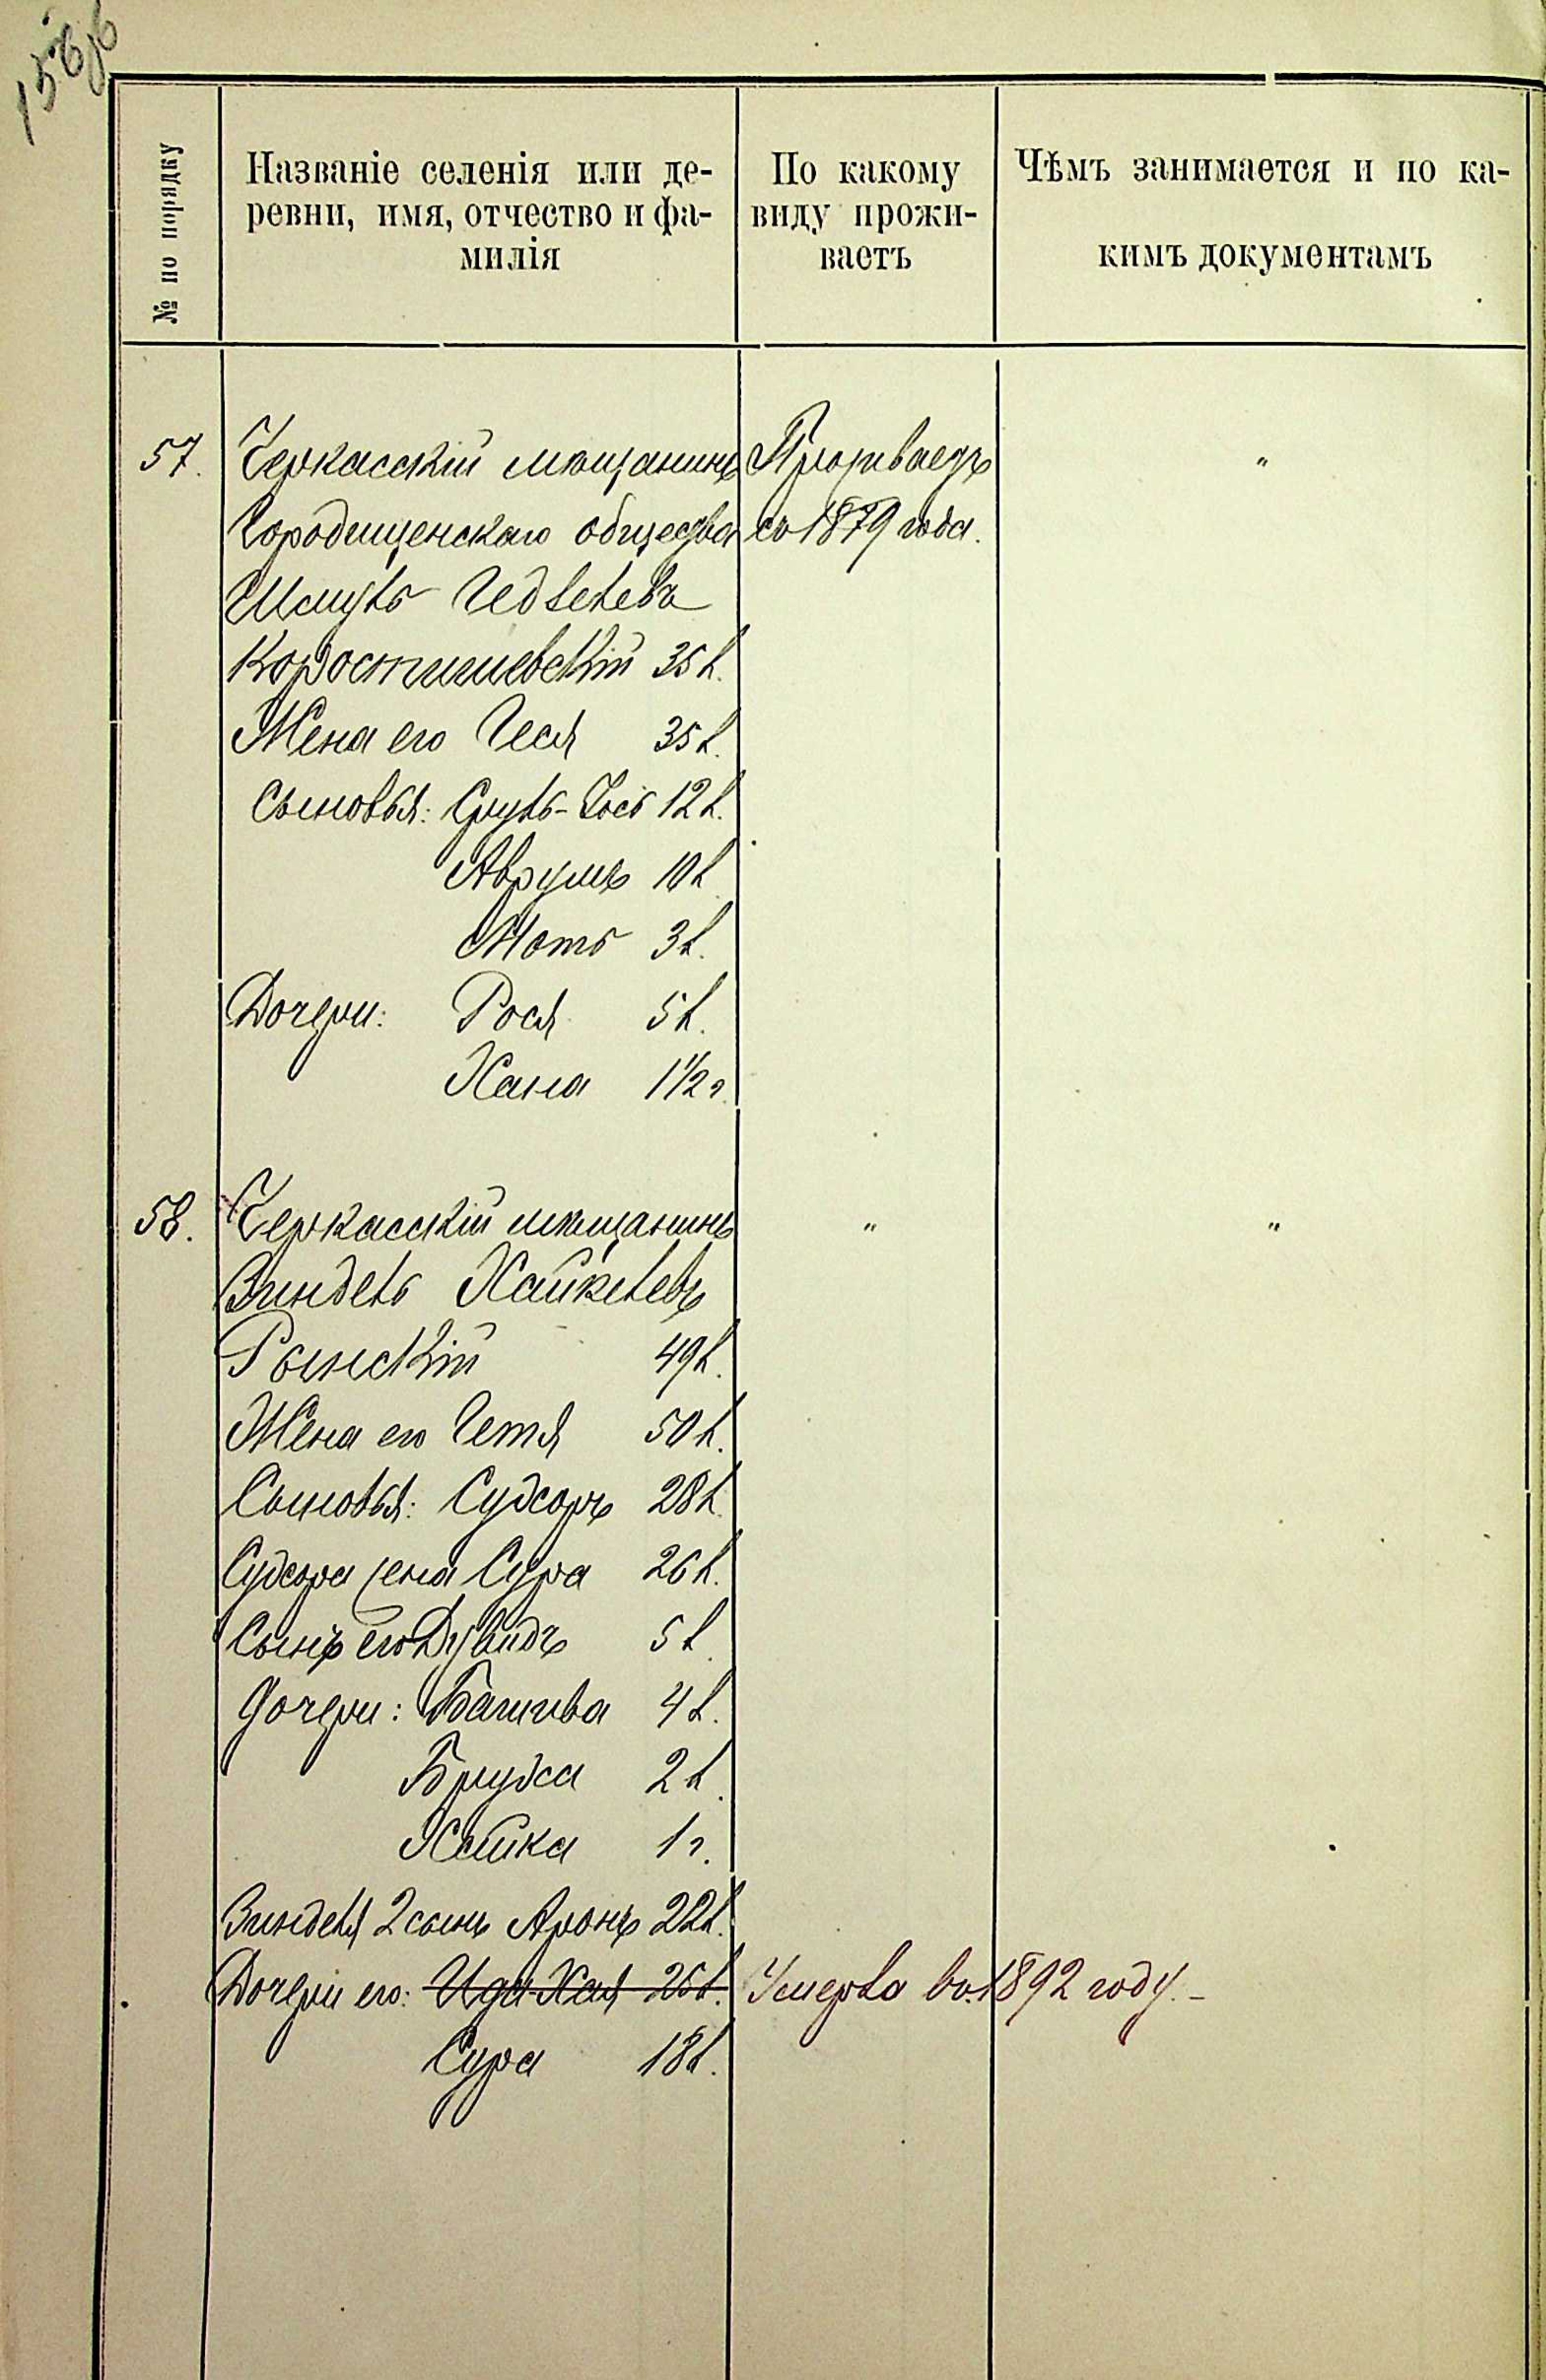 156об
№ по порядку
Названіе селенія или де-
ревни, имя, отчество и фа-
милія
По какому
виду прожи-
ваетъ
Чѣмъ занимается и по ка-
кимъ документамъ
57. Черкасскій мѣщанинъ Проживаетъ "
Городищенскаго общества съ 1879 года.
Шмуль Гедалевъ
Коростишевскій 35 л.
Жена его Геся 35 л.
Сыновья: Сруль-Іось 12 л.
Аврумъ 10 л
Моть 3 л.
Дочери: Рося 5 л.
Хана 1 1/2 г.
58. Черкасскій мѣщанинъ " "
Зиндель Хайкелевъ
Рыжскій 49 л.
Жена его Гетя 50 л.
Сыновья: Судсоръ 28 л.
Судсора жена Сура 26 л.
Сынъ его Дувидъ 5 л.
Дочери: Башива 4 л.
Бруха 2 л.
Хайка 1 г.
Зинделя 2 сынъ Аронъ 22 л.
Дочери его: Ида-Хая 26 л. Умерла въ 1892 году.-
Сура 18 л.